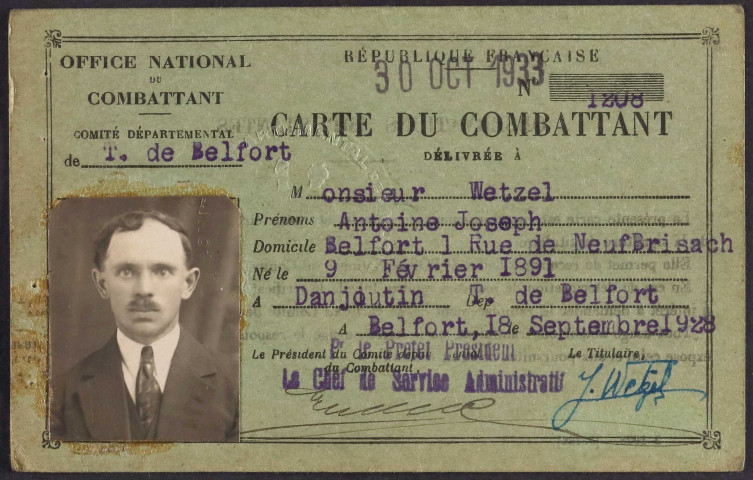 OFFICE NATIONAL
DU
COMBATTANT
COMITÉ DÉPARTEMENTAL
de T. de Belfort
RÉPUBLIQUE FRANÇAISE
30 OCT 1933
N°
1208
CARTE DU COMBATTANT
DÉLIVRÉE À
Monsieur Wetzel
Prénoms Antoine Joseph
Domicile Belfort 1 Rue de NeufBrisach
Né le 9 Février 1891
A Danjoutin Dep. T. de Belfort
A Belfort, 18 Septembre 1928
Le Président du Comité dép
du Combattant,
Pr le Préfet Président
Le Chef de Service Administratif
Le Titulaire,
J. Wetzel